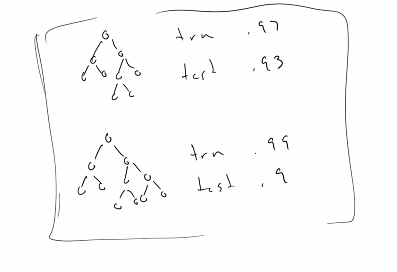 trn .97
test .93
trn .99
test .9